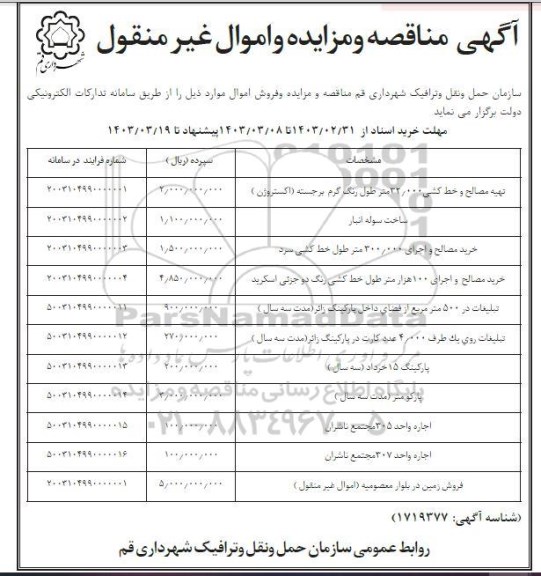 آگهی مناقصه ومزایده واموال غیر منقول
شهرداری قم
سازمان حمل ونقل وترافیک شهرداری قم مناقصه و مزایده وفروش اموال موارد ذیل را از طریق سامانه تدارکات الکترونیکی
دولت برگزار می نماید
مهلت خرید اسناد از ۱۴۰۳/۰۲/۳۱تا ۱۴۰۳/۰۳/۰۸پیشنهاد تا ۱۴۰۳/۰۳/۱۹
مشخصات سپرده (ریال) شماره فرایند در سامانه
تهیه مصالح و خط کشی۳۲٫۰۰۰متر طول رنگ گرم برجسته (اکستروژن) ۲٫۰۰۰٫۰۰۰٫۰۰۰ ۲۰۰۳۱۰۴۹۹۰۰۰۰۰۰۱
ساخت سوله انبار ۱٫۱۰۰٫۰۰۰٫۰۰۰ ۲۰۰۳۱۰۴۹۹۰۰۰۰۰۰۲
خرید مصالح و اجرای ۳۰۰٫۰۰۰ متر طول خط کشی سرد ۱٫۵۰۰٫۰۰۰٫۰۰۰ ۲۰۰۳۱۰۴۹۹۰۰۰۰۰۰۳
خرید مصالح و اجرای ۱۰۰هزار متر طول خط کشی رنگ دو جزئی اسکرید ۴٫۸۵۰٫۰۰۰٫۰۰۰ ۲۰۰۳۱۰۴۹۹۰۰۰۰۰۰۴
تبلیغات در ۵۰۰ متر مربع از فضای داخل پارکینگ زائر(مدت سه سال) ۹۰۰٫۰۰۰٫۰۰۰ ۵۰۰۳۱۰۴۹۹۰۰۰۰۰۱۱
تبلیغات روی یك طرف ۴٫۰۰۰ عدد کارت در پارکینگ زائر(مدت سه سال) ۲۷۰٫۰۰۰٫۰۰۰ ۵۰۰۳۱۰۴۹۹۰۰۰۰۰۱۲
پارکینگ ۱۵خرداد (سه سال) ۲۰۰٫۰۰۰٫۰۰۰ ۵۰۰۳۱۰۴۹۹۰۰۰۰۰۱۳
پارکو متر (مدت سه سال) ۵۰۰۳۱۰۴۹۹۰۰۰۰۰۱۴
اجاره واحد ۳۰۵مجتمع ناشران ۱۰۰٫۰۰۰٫۰۰۰ ۵۰۰۳۱۰۴۹۹۰۰۰۰۰۱۵
اجاره واحد ۳۰۷مجتمع ناشران ۱۰۰٫۰۰۰٫۰۰۰ ۵۰۰۳۱۰۴۹۹۰۰۰۰۰۱۶
فروش زمین در بلوار معصومیه (اموال غیر منقول) ۵٫۰۰۰٫۰۰۰٫۰۰۰ ۲۰۰۳۱۰۴۹۹۰۰۰۰۰۱
ParsNamadData
پایگاه اطلاع رسانی مناقصه و مزایده
۰۲۱-۸۸۳۴۹۶۷۰-۵
(شناسه آگهی: ۱۷۱۹۳۷۷)
روابط عمومی سازمان حمل ونقل وترافیک شهرداری قم